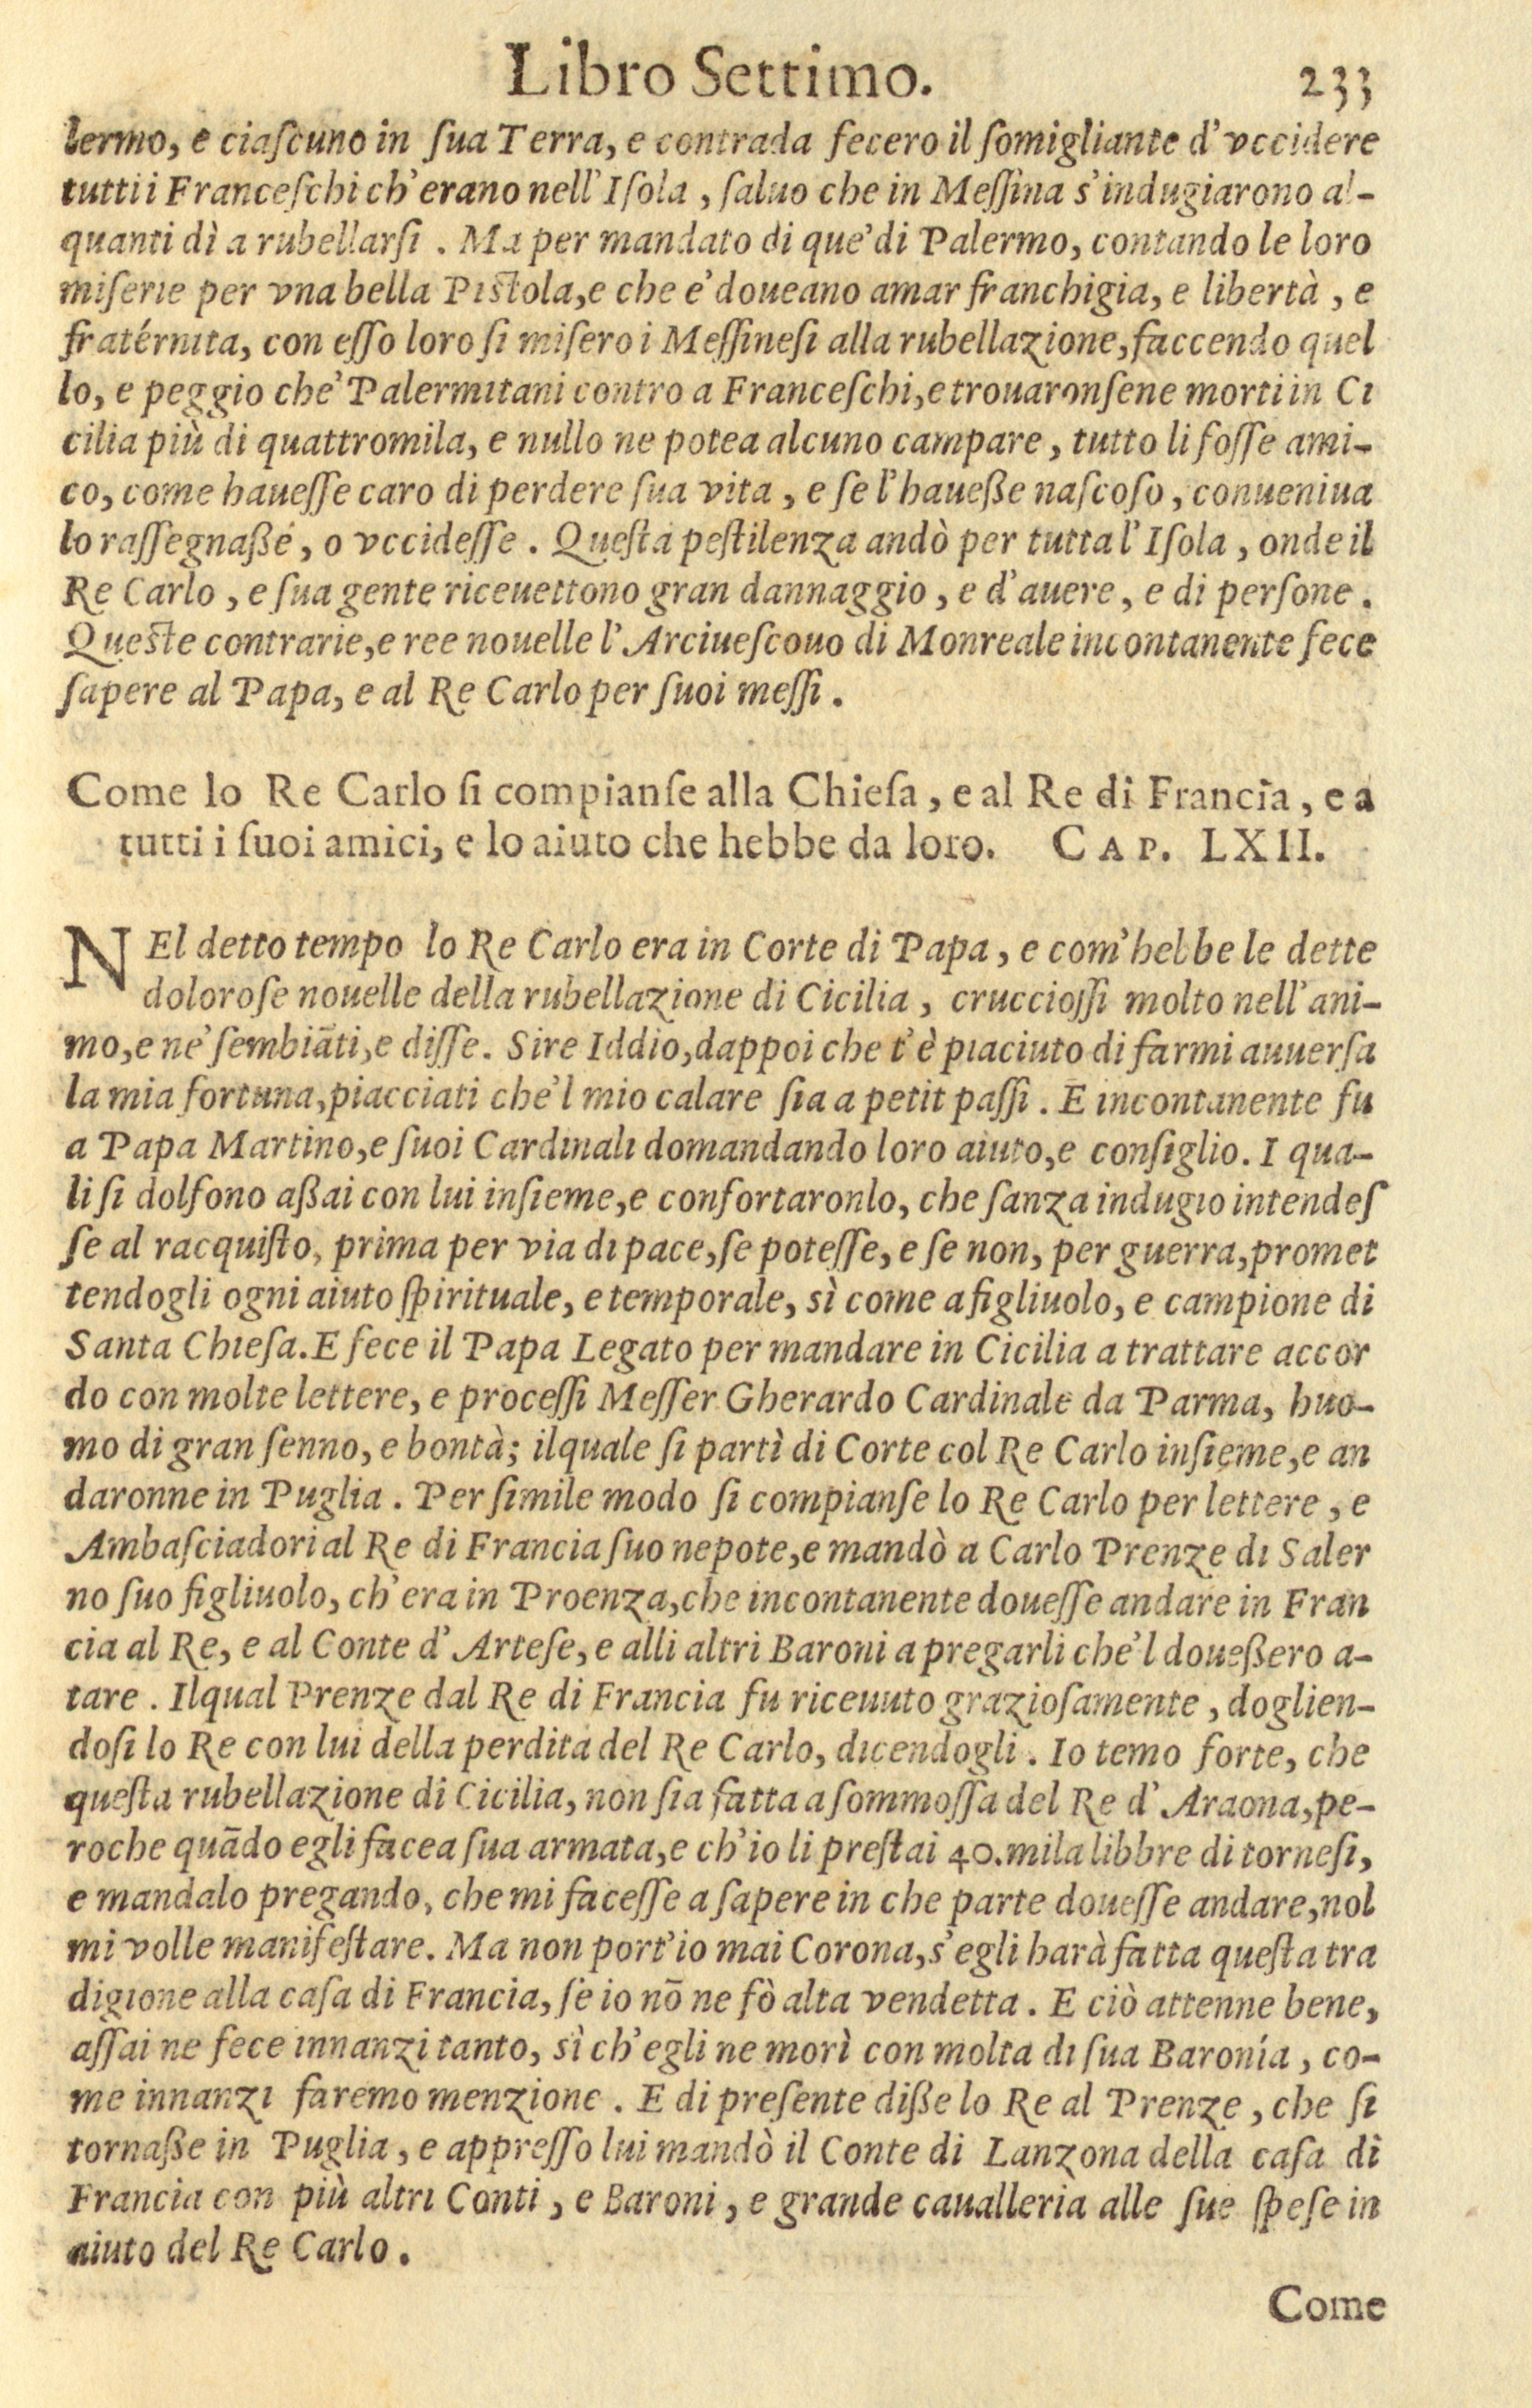 Libro Settimo. 233
lermo, e ciaſcuno in ſua Terra, e contrada fecero il ſomigliante d'vccidere
tutti i Franceſchi ch'erano nell'Iſola, ſaluo che in Meſſina s'indugiarono al-
quanti dì a rubellarſi. Ma per mandato di que'di Palermo, contando le loro
miſerie per vna bella Piſtola, e che e'doueano amar franchigia, e libertà, e
fratérnita, con eſſo loro ſi miſero i Meſſineſi alla rubellazione, faccendo quel
lo, e peggio che'Palermitani contro a Franceſchi, e trouaronſene morti in Ci
cilia più di quattromila, e nullo ne potea alcuno campare, tutto li foſſe ami-
co, come haueſſe caro di perdere ſua vita, e ſe l'haueße naſcoſo, conueniua
lo raſſegnaße, o vccideſſe. Queſta peſtilenza andò per tutta l'Iſola, onde il
Re Carlo, e ſua gente riceuettono gran dannaggio, e d'auere, e di perſone.
Queſte contrarie, e ree nouelle l'Arciueſcouo di Monreale incontanente fece
ſapere al Papa, e al Re Carlo per ſuoi meſſi.
Come lo Re Carlo ſi compianſe alla Chieſa, e al Re di Francia, e a
tutti i ſuoi amici, e lo aiuto che hebbe da loro. CAP. LXII.
NEl detto tempo lo Re Carlo era in Corte di Papa, e com'hebbe le dette
doloroſe nouelle della rubellazione di Cicilia, cruccioſſi molto nell'ani-
mo, e ne'ſembiāti, e diſſe. Sire Iddio, dappoi che t'è piaciuto di farmi auuerſa
la mia fortuna, piacciati che'l mio calare ſia a petit paſſi. E incontanente fu
a Papa Martino, e ſuoi Cardinali domandando loro aiuto, e conſiglio. I qua-
li ſi dolſono aßai con lui inſieme, e confortaronlo, che ſanza indugio intendeſ
ſe al racquiſto, prima per via di pace, ſe poteſſe, e ſe non, per guerra, promet
tendogli ogni aiuto ſpirituale, e temporale, sì come a figliuolo, e campione di
Santa Chieſa. E fece il Papa Legato per mandare in Cicilia a trattare accor
do con molte lettere, e proceſſi Meſſer Gherardo Cardinale da Parma, huo-
mo di gran ſenno, e bontà; ilquale ſi partì di Corte col Re Carlo inſieme, e an
daronne in Puglia. Per ſimile modo ſi compianſe lo Re Carlo per lettere, e
Ambaſciadori al Re di Francia ſuo nepote, e mandò a Carlo Prenze di Saler
no ſuo figliuolo, ch'era in Proenza, che incontanente doueſſe andare in Fran
cia al Re, e al Conte d'Arteſe, e alli altri Baroni a pregarli che'l doueßero a-
tare. Ilqual Prenze dal Re di Francia fu riceuuto grazioſamente, doglien-
doſi lo Re con lui della perdita del Re Carlo, dicendogli. Io temo forte, che
queſta rubellazione di Cicilia, non ſia fatta a ſommoſſa del Re d'Araona, pe-
roche quādo egli facea ſua armata, e ch'io li preſtai 40. mila libbre di torneſi,
e mandalo pregando, che mi faceſſe a ſapere in che parte doueſſe andare, nol
mi volle manifeſtare. Ma non port'io mai Corona, s'egli harà fatta queſta tra
digione alla caſa di Francia, ſe io nō ne fò alta vendetta. E ciò attenne bene,
aſſai ne fece innanzi tanto, sì ch'egli ne morì con molta di ſua Baronía, co-
me innanzi faremo menzione. E di preſente diße lo Re al Prenze, che ſi
tornaße in Puglia, e appreſſo lui mandò il Conte di Lanzona della caſa di
Francia con più altri Conti, e Baroni, e grande caualleria alle ſue ſpeſe in
aiuto del Re Carlo.
Come